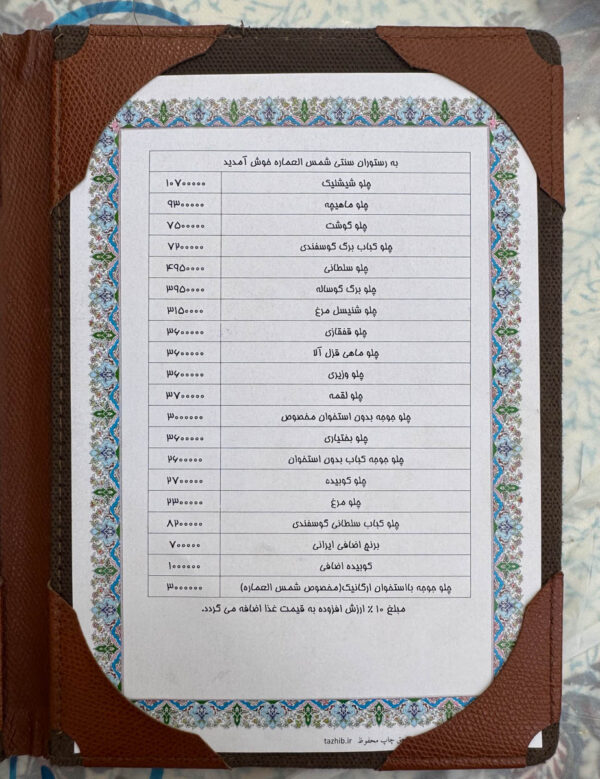 به رستوران سنتی شمس العماره خوش آمدید
چلو شیشلیک ۱۰۷۰۰۰۰۰
چلو ماهیچه ۹۳۰۰۰۰۰
چلو گوشت ۷۵۰۰۰۰۰
چلو کباب برگ گوسفندی ۷۲۰۰۰۰۰
چلو سلطانی ۴۹۵۰۰۰۰
چلو برگ گوساله ۳۹۵۰۰۰۰
چلو شنیسل مرغ ۳۱۵۰۰۰۰
چلو قفقازی ۳۶۰۰۰۰۰
چلو ماهی قزل آلا ۳۶۰۰۰۰۰
چلو وزیری ۳۶۰۰۰۰۰
چلو لقمه ۳۷۰۰۰۰۰
چلو جوجه بدون استخوان مخصوص ۳۰۰۰۰۰۰
چلو بختیاری ۳۶۰۰۰۰۰
چلو جوجه کباب بدون استخوان ۲۶۰۰۰۰۰
چلو کوبیده ۲۷۰۰۰۰۰
چلو مرغ ۲۳۰۰۰۰۰
چلو کباب سلطانی گوسفندی ۸۲۰۰۰۰۰
برنج اضافی ایرانی ۷۰۰۰۰۰
کوبیده اضافی ۱۰۰۰۰۰۰
چلو جوجه بااستخوان ارگانیک(مخصوص شمس العماره) ۳۰۰۰۰۰۰
مبلغ ۱۰ ٪ ارزش افزوده به قیمت غذا اضافه می گردد.
چاپ محفوظ tazhib.ir